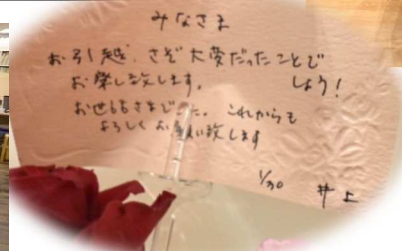 みなさま
お引越、さぞ大変だったことで
しょう!
お察し致します。
お世話さまでした。これからも
よろしくお願い致します
1/30 井上